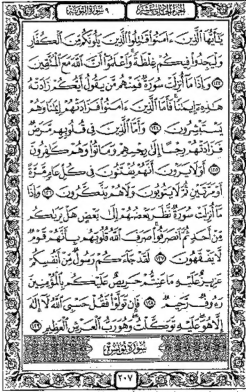 يَٰٓأَيُّهَا ٱلَّذِينَ ءَامَنُوا۟ قَٰتِلُوا۟ ٱلَّذِينَ يَلُونَكُم مِّنَ ٱلْكُفَّارِ
وَلْيَجِدُوا۟ فِيكُمْ غِلْظَةً وَٱعْلَمُوٓا۟ أَنَّ ٱللَّهَ مَعَ ٱلْمُتَّقِينَ
﴿١٢٣﴾ وَإِذَا مَآ أُنزِلَتْ سُورَةٌ فَمِنْهُم مَّن يَقُولُ أَيُّكُمْ زَادَتْهُ
هَٰذِهِۦٓ إِيمَٰنًا فَأَمَّا ٱلَّذِينَ ءَامَنُوا۟ فَزَادَتْهُمْ إِيمَٰنًا وَهُمْ
يَسْتَبْشِرُونَ ﴿١٢٤﴾ وَأَمَّا ٱلَّذِينَ فِى قُلُوبِهِم مَّرَضٌ
فَزَادَتْهُمْ رِجْسًا إِلَىٰ رِجْسِهِمْ وَمَاتُوا۟ وَهُمْ كَٰفِرُونَ
﴿١٢٥﴾ أَوَلَا يَرَوْنَ أَنَّهُمْ يُفْتَنُونَ فِى كُلِّ عَامٍ مَّرَّةً
أَوْ مَرَّتَيْنِ ثُمَّ لَا يَتُوبُونَ وَلَا هُمْ يَذَّكَّرُونَ ﴿١٢٦﴾ وَإِذَا
مَآ أُنزِلَتْ سُورَةٌ نَّظَرَ بَعْضُهُمْ إِلَىٰ بَعْضٍ هَلْ يَرَىٰكُم
مِّنْ أَحَدٍ ثُمَّ ٱنصَرَفُوا۟ صَرَفَ ٱللَّهُ قُلُوبَهُم بِأَنَّهُمْ قَوْمٌ
لَّا يَفْقَهُونَ ﴿١٢٧﴾ لَقَدْ جَآءَكُمْ رَسُولٌ مِّنْ أَنفُسِكُمْ
عَزِيزٌ عَلَيْهِ مَا عَنِتُّمْ حَرِيصٌ عَلَيْكُم بِٱلْمُؤْمِنِينَ
رَءُوفٌ رَّحِيمٌ ﴿١٢٨﴾ فَإِن تَوَلَّوْا۟ فَقُلْ حَسْبِىَ ٱللَّهُ لَآ إِلَٰهَ
إِلَّا هُوَ عَلَيْهِ تَوَكَّلْتُ وَهُوَ رَبُّ ٱلْعَرْشِ ٱلْعَظِيمِ ﴿١٢٩﴾
سُورَةُ يُونُسَ
٢٠٧